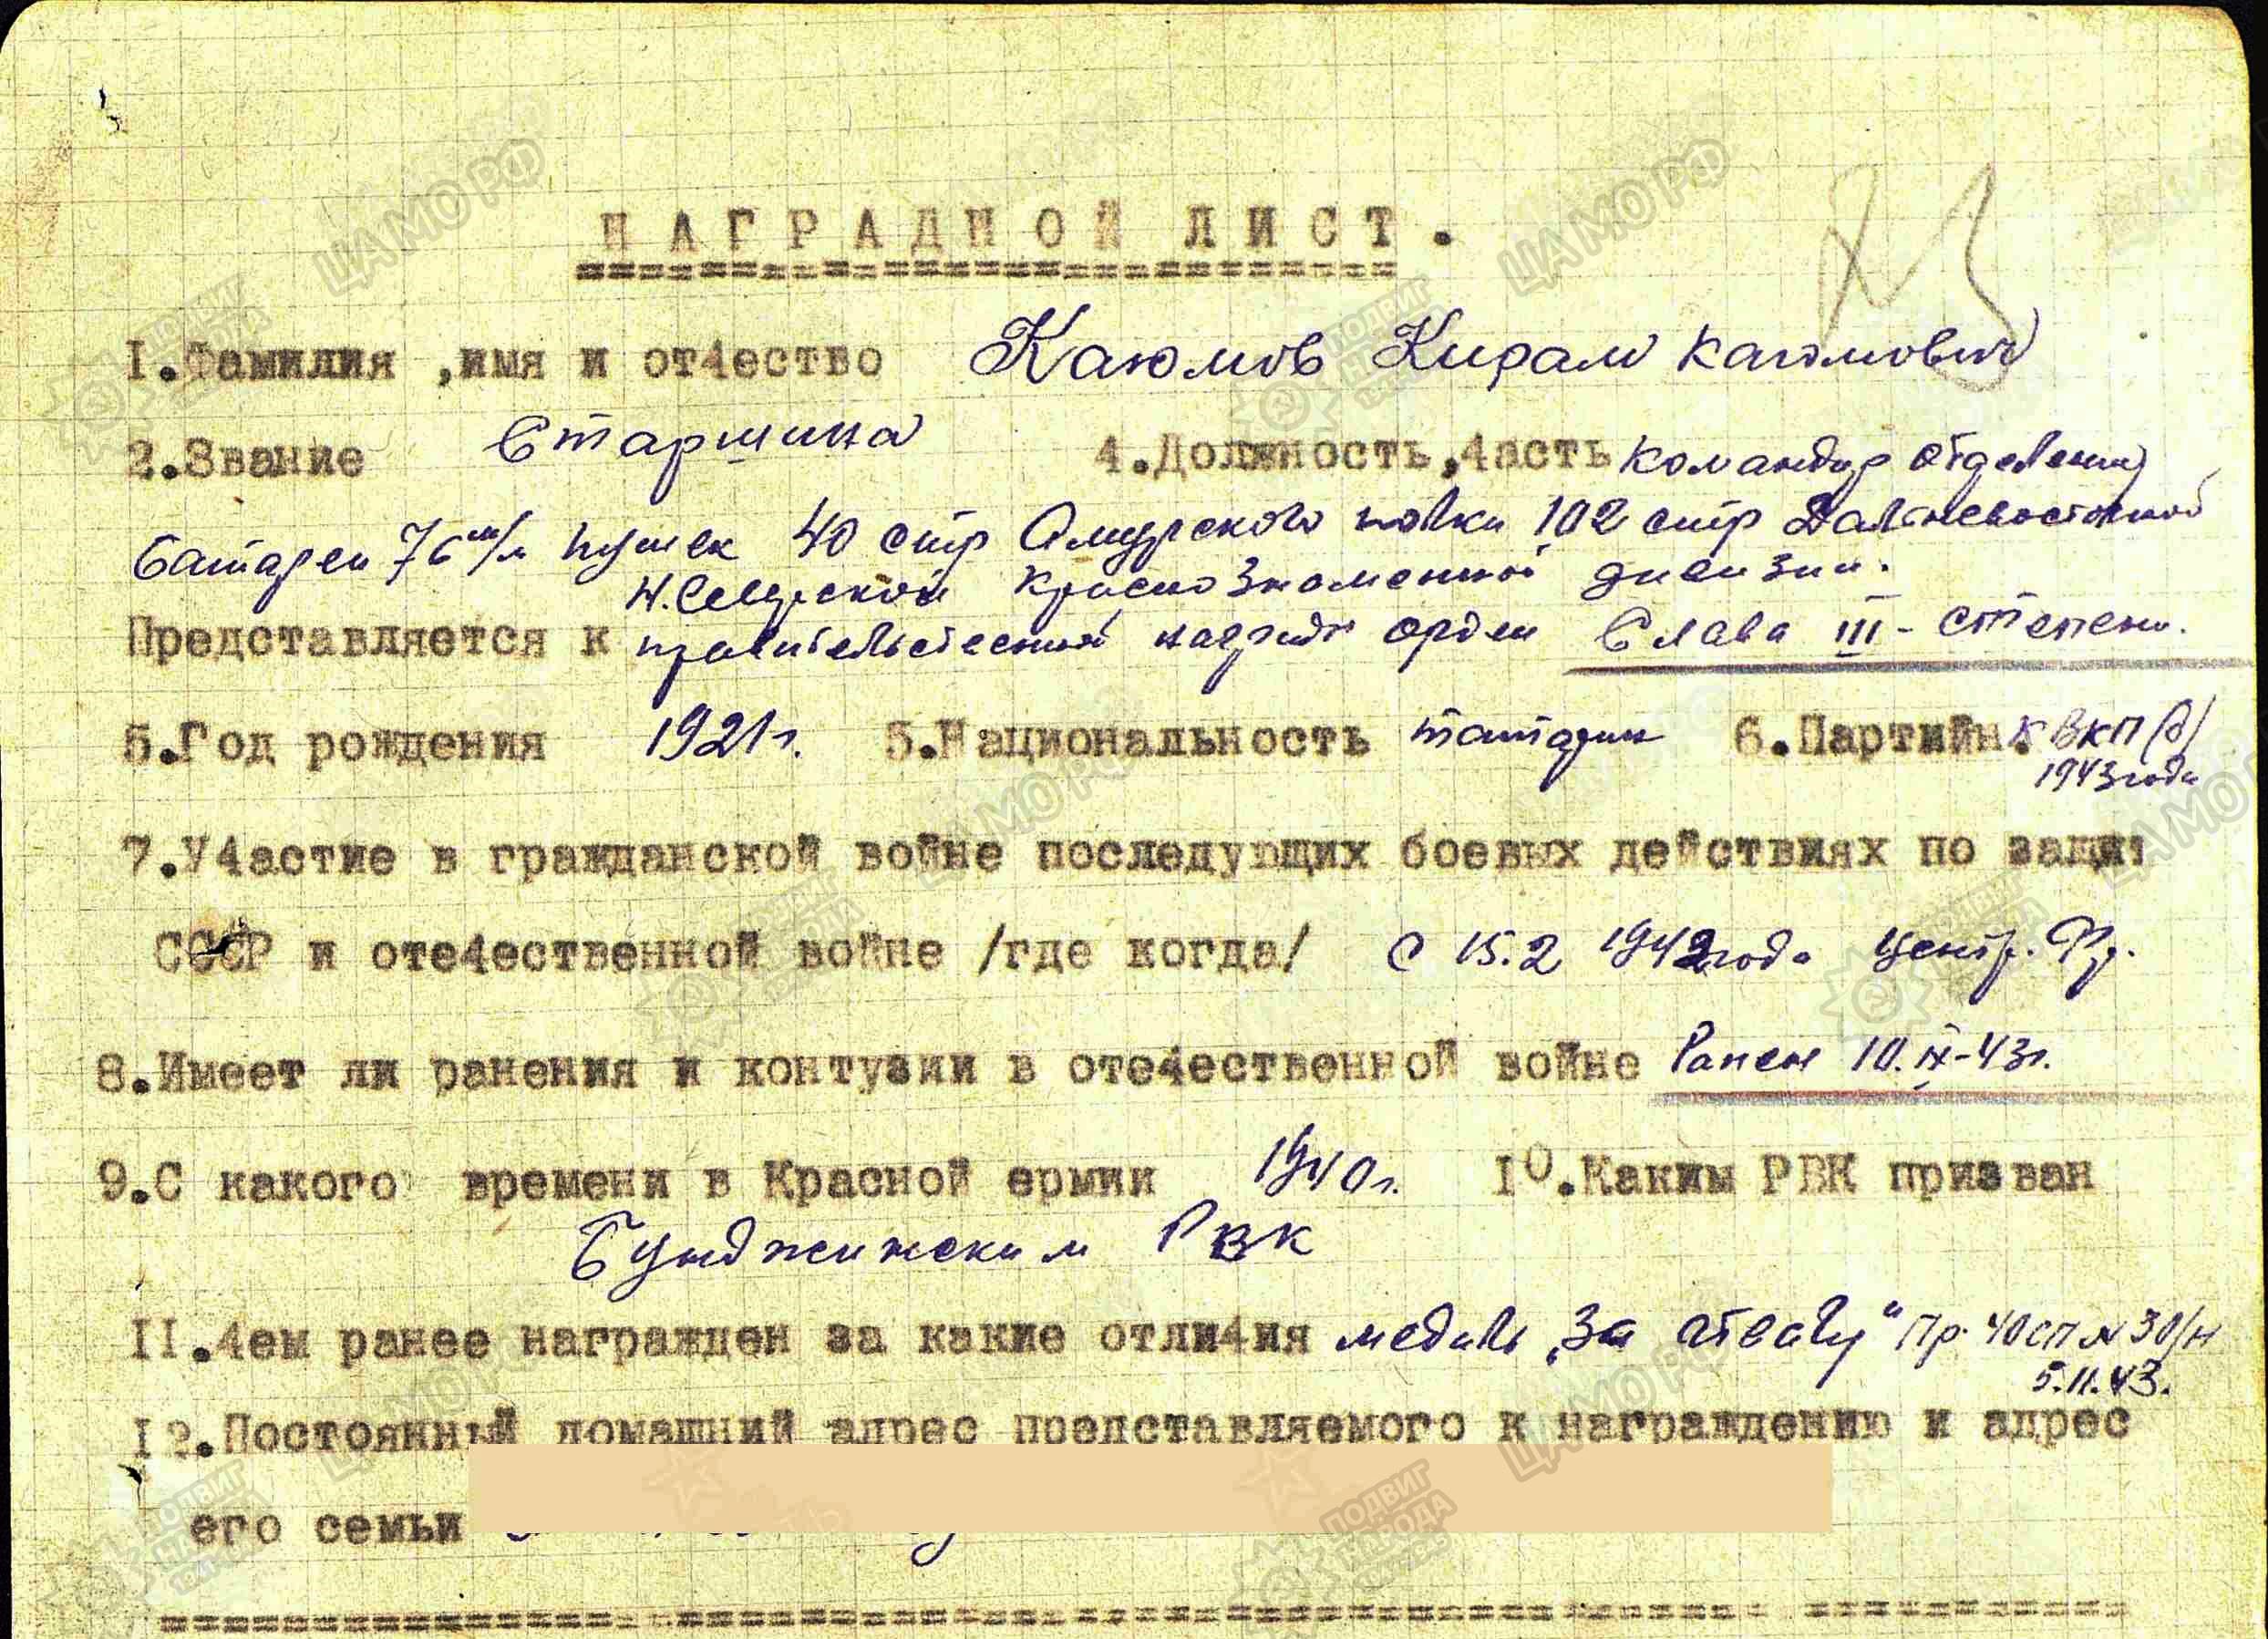 НАГРАДНОЙ ЛИСТ.
I.Фамилия ,имя и от4ество Каюмов Кирам Каюмович
2.Звание Старшина 4.Должность,4асть командир отделения
батареи 76 м/м пушек 40 стр Амурского полка 102 стр Дальневосточной
Н.Северской Краснознаменной дивизии.
Представляется к правительственной награде орден Слава III-степени.
5.Год рождения 1921г. 5.Национальность татарин 6.Партийн. К ВКП(б)
1943 года
7.У4астие в гражданской войне последующих боевых действиях по защит
СССР и оте4ественной войне /где когда/ С 15.2 1942 года Центр. Фр.
8.Имеет ли ранения и контузии в оте4ественной войне Ранен 10.IX-43г.
9.С какого времени в Красной ермии 1940г. I0.Каким РВК призван
РВК
II.4ем ранее награжден за какие отли4ия медаль "За отвагу" Пр. 40 СП № 30/н
5.11.43.
I2.Постоянный домашний адрес представляемого к награждению и адрес
его семьи